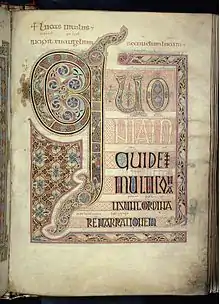 + lucas uitulus
incipit euangelium secundum lucam
QUO
NIAM
QUIDE
MULTI CO
ORDINA
RE NARRATIONEM